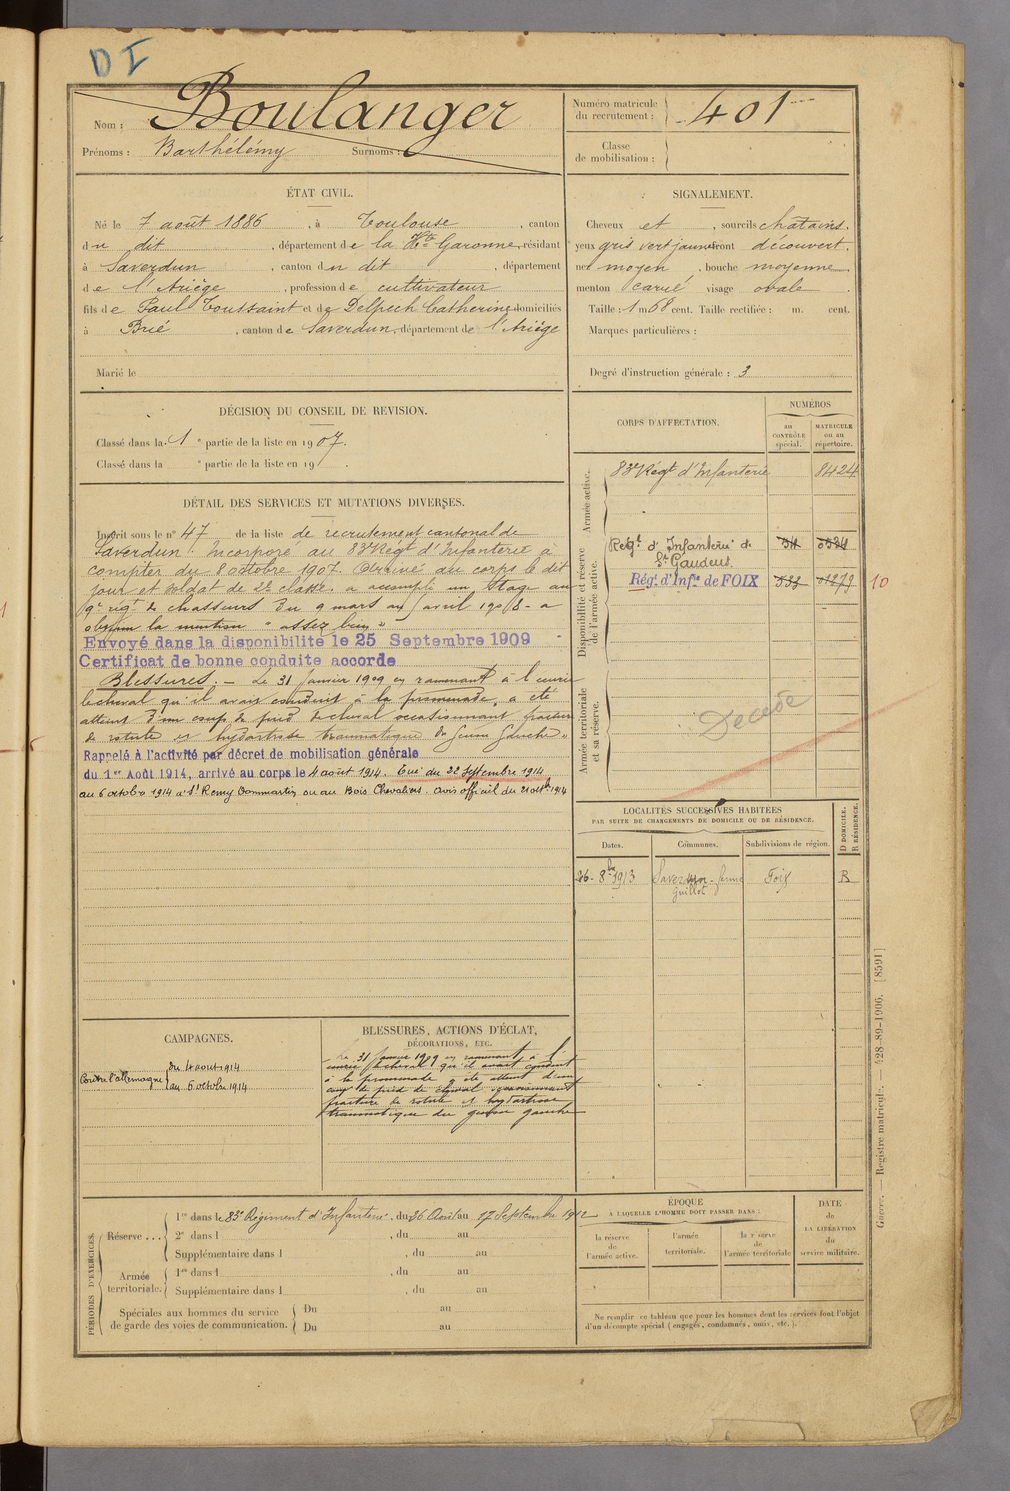 DI
Nom : Boulanger
Prénoms : Barthélémy Surnoms :
Numéro matricule du recrutement : 401
Classe de mobilisation :
ÉTAT CIVIL.
Né le 7 août 1886, à Toulouse, canton
du dit, département de la Hte Garonne, résidant
à Saverdun, canton du dit, département
de l'Ariège, profession de cultivateur
fils de Paul Toussaint et de Delpech Catherine domiciliés
à Brié, canton de Saverdun, département de l'Ariège
Marié le
SIGNALEMENT.
Cheveux et, sourcils châtains.
yeux gris vert jaune front découvert
nez moyen, bouche moyenne
menton carré visage ovale.
Taille : 1 m 68 cent. Taille rectifiée : m. cent.
Marques particulières :
Degré d'instruction générale : 3
DÉCISION DU CONSEIL DE REVISION.
Classé dans la 1 e partie de la liste en 1907.
Classé dans la e partie de la liste en 19 .
DÉTAIL DES SERVICES ET MUTATIONS DIVERSES.
Inscrit sous le n° 47 de la liste de recrutement cantonal de
Saverdun. Incorporé au 83e Régt d'Infanterie à
compter du 8 octobre 1907. Arrivé au corps le dit
jour et soldat de 2e classe. a accompli un stage au
9e régt de chasseurs du 9 mars au avril 1908 - a
obtenu la mention "assez bien"
Envoyé dans la disponibilité le 25 Septembre 1909
Certificat de bonne conduite accordé
Blessures. — Le 31 janvier 1909 en ramenant à l'écurie
le cheval qu'il avait conduit à la promenade, a été
atteint d'un coup de pied de cheval occasionnant fracture
de rotule et hydartrose traumatique du genou gauche"
Rappelé à l'activité par décret de mobilisation générale
du 1er Août 1914, arrivé au corps le 4 août 1914. Tué du 22 Septembre 1914
au 6 octobre 1914 à St Remy Dommartin ou au Bois Chevaliers. avis officiel du 21 octb. 1914
CORPS D'AFFECTATION.
NUMÉROS
au CONTRÔLE spécial.
MATRICULE ou au répertoire.
Armée active.
83e Régt d'Infanterie 8424
Disponibilité et réserve de l'armée active.
Régt d'Infanterie de St Gaudens
Régt d'Infie de FOIX 01279 10
Armée territoriale et sa réserve.
Décédé
LOCALITÉS SUCCESSIVES HABITÉES
PAR SUITE DE CHANGEMENTS DE DOMICILE OU DE RÉSIDENCE.
Dates. Communes. Subdivisions de région. D DOMICILE. R RÉSIDENCE.
26 - 8bre 1913 Saverdun - ferme Guillot Foix R
CAMPAGNES.
Contre l'allemagne du 4 aout 1914
au 6 octobre 1914
BLESSURES, ACTIONS D'ÉCLAT,
DÉCORATIONS, ETC.
Le 31 janvier 1909 en ramenant à l'
écurie le cheval qu'il avait conduit
à la promenade a été atteint d'un
coup de pied de cheval occasionnant
fracture de rotule et hydartrose
traumatique du genou gauche
PÉRIODES D'EXERCICES.
Réserve ... 1re dans le 83e Régiment d'Infanterie, du 26 Août au 17 Septembre 1912
2e dans l , du au
Supplémentaire dans l , du au
Armée territoriale. 1re dans l , du au
Supplémentaire dans l , du au
Spéciales aux hommes du service de garde des voies de communication. Du au
Du au
ÉPOQUE
À LAQUELLE L'HOMME DOIT PASSER DANS :
la réserve de l'armée active.
l'armée territoriale.
la réserve de l'armée territoriale
DATE de LA LIBÉRATION du service militaire.
Ne remplir ce tableau que pour les hommes dont les services font l'objet
d'un décompte spécial (engagés, condamnés, omis, etc.).
Guerre. — Registre matricule. — 428-89-1906. [8591]